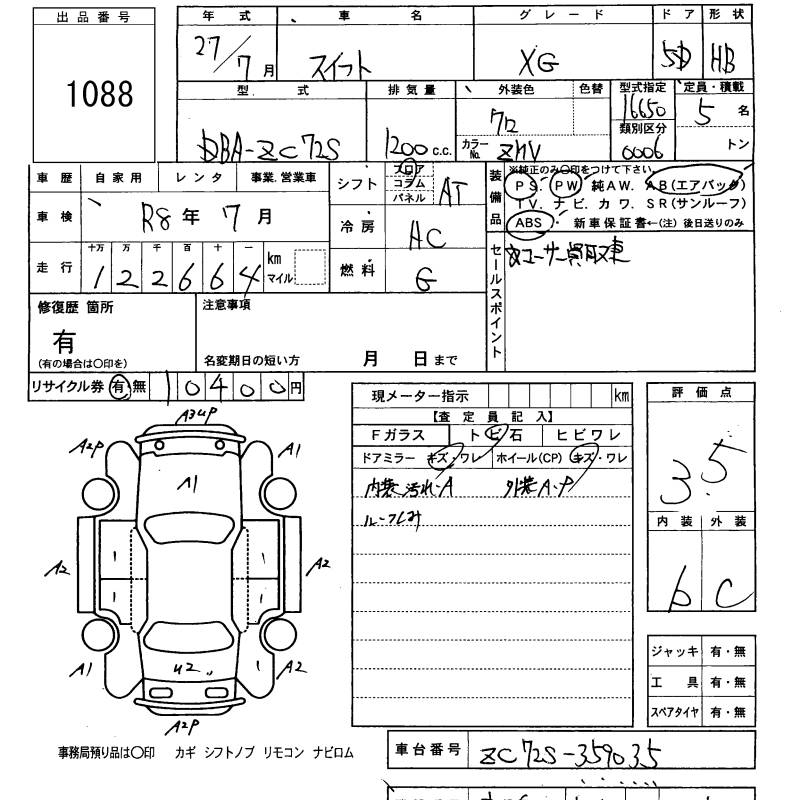 出品番号
1088
年式 車名 グレード ドア 形状
27/7月 スイフト XG 5D HB
型式 排気量 外装色 色替 型式指定 定員・積載
16650 5名
クロ 類別区分
DBA-ZC72S 1200c.c. カラーNo. ZMV 0006 トン
車歴 自家用 レンタ 事業.営業車
シフト フロア コラム パネル AT
装備品 ※純正のみ〇印をつけて下さい。
PS. PW 純AW. AB(エアバッグ)
TV. ナビ. カワ. SR(サンルーフ)
ABS 新車保証書←(注) 後日送りのみ
車検 R8年 7月
冷房 AC
走行 十万 万 千 百 十 一 km マイル
122664
燃料 G
セールスポイント ユーザー買取車
修復歴 箇所
有
(有の場合は〇印を)
注意事項
名変期日の短い方 月 日まで
リサイクル券 有 無 10400円
現メーター指示 km
【査定員記入】
Fガラス トビ石 ヒビワレ
ドアミラー キズ・ワレ ホイール(CP) キズ・ワレ
内装汚れ・A 外装A・P
評価点
3.5
内装 外装
b C
A3UP
A2P A1
A1
A2 A2
A1 A2
U2
A2P
ジャッキ 有・無
工具 有・無
スペアタイヤ 有・無
事務局預り品は〇印 カギ シフトノブ リモコン ナビロム
車台番号 ZC72S-359035